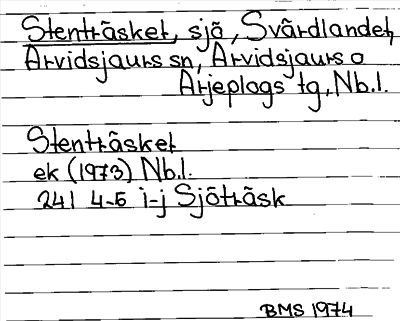 Stenträsket, sjö, Svärdlandet,
Arvidsjaurs sn, Arvidsjaurs o
Arjeplogs tg, Nb.l.
Stenträsket
ek (1973) Nb.l.
241 4-5 i-j Sjöträsk
BMS 1974